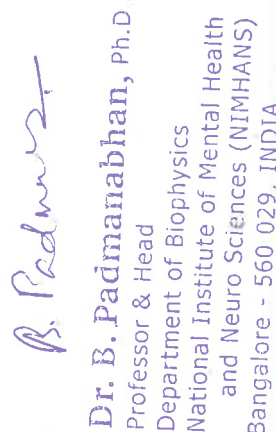 B. Padmanabhan
Dr. B. Padmanabhan, Ph.D
Professor & Head
Department of Biophysics
National Institute of Mental Health
and Neuro Sciences (NIMHANS)
Bangalore - 560 029, INDIA